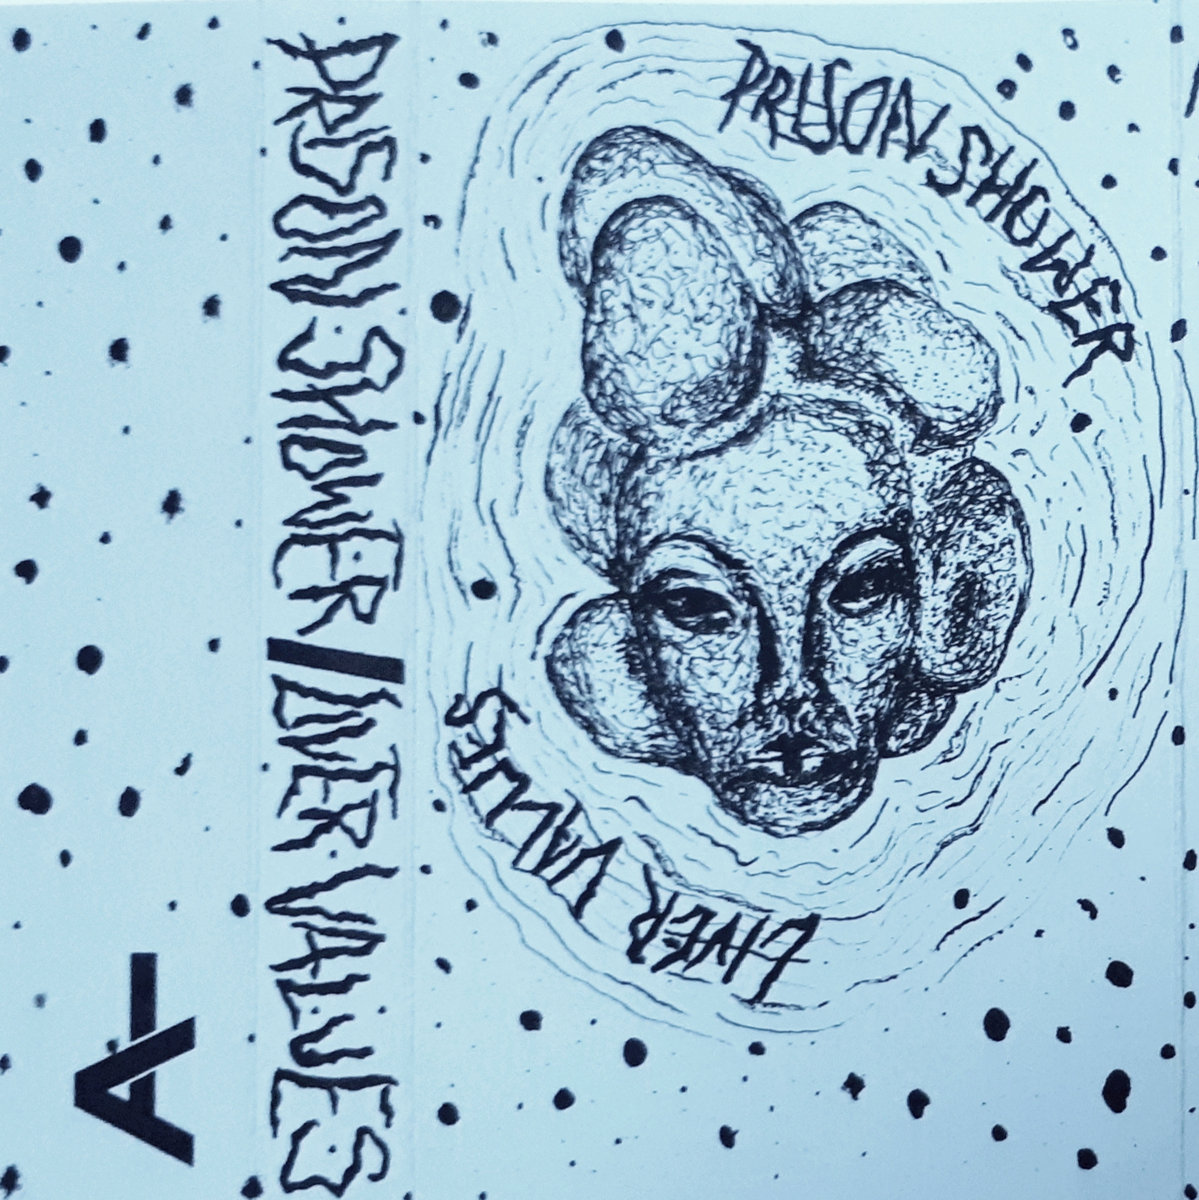 PRISON SHOWER/LIVER VALUES
PRISON SHOWER
LIVER VALUES
A